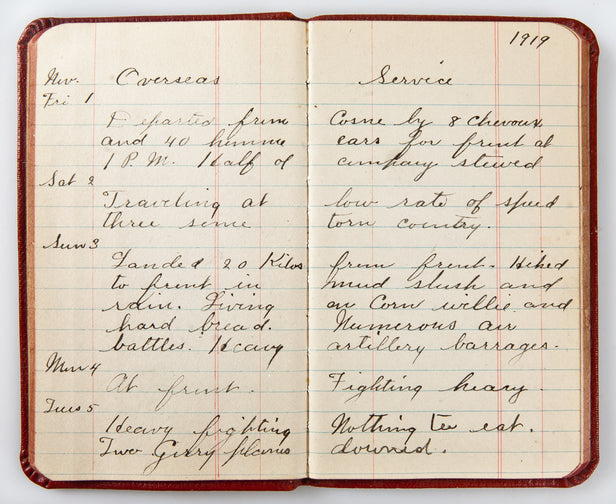 1919
Nov. Overseas Service
Fri 1
Departed from Cosne by 8 chevoux
and 40 homme cars for front at
1 P.M. Half of company stewed
Sat 2
Traveling at low rate of speed
three some torn country.
Sun 3
Landed 20 Kilos from front. Hiked
to front in mud slush and
rain. Living on Corn willie and
hard bread. Numerous air
battles. Heavy artillery barrages.
Mon 4
At front. Fighting heavy.
Tues 5
Heavy fighting Nothing too eat.
Two Gerry planes downed.